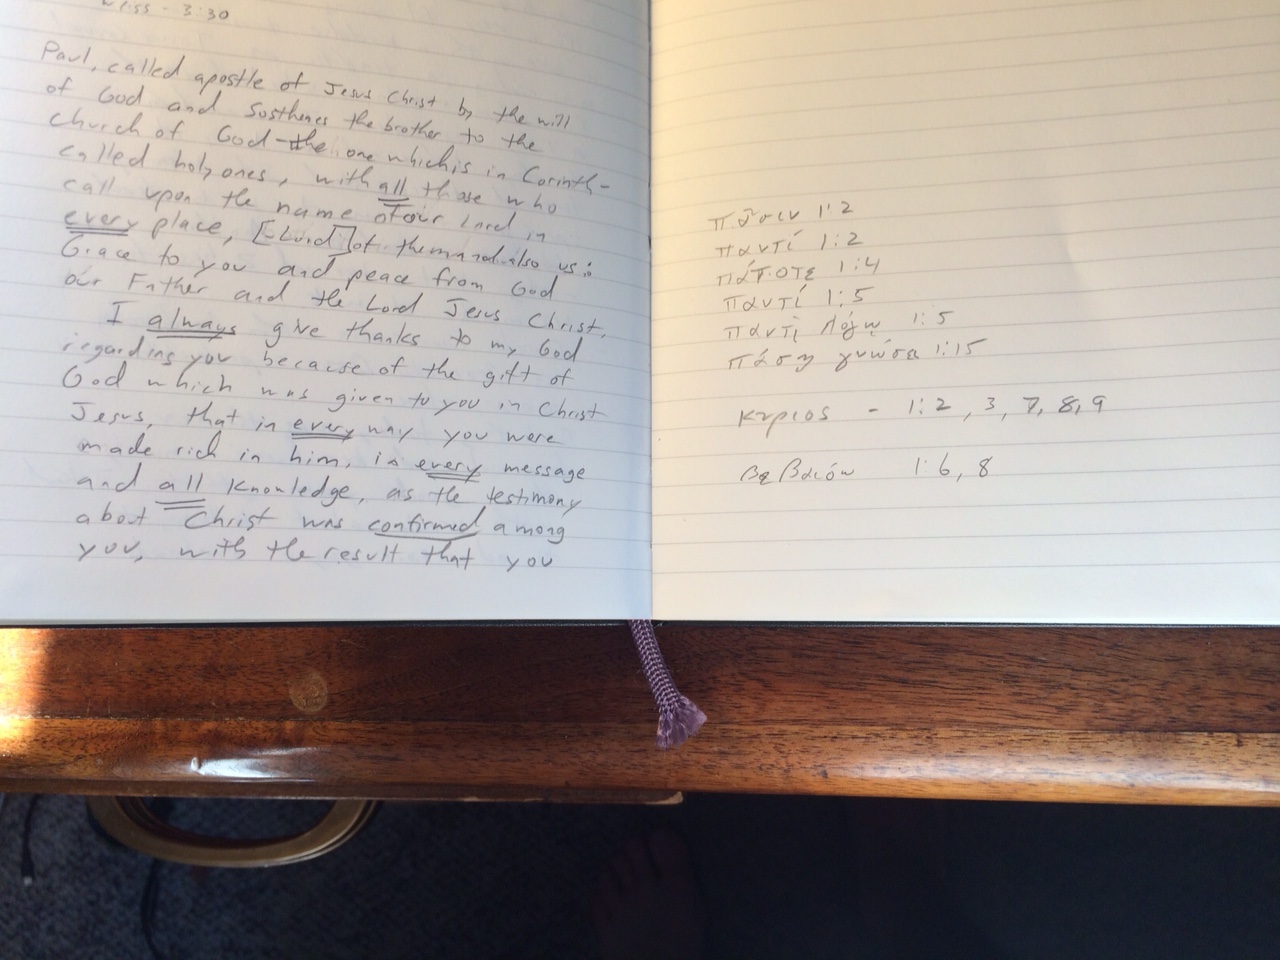 3:30
Paul, called apostle of Jesus Christ by the will
of God and Sosthenes the brother to the
church of God - the one which is in Corinth -
called holy ones, with all those who
call upon the name of our Lord in
every place, [Lord] of them and also us:
Grace to you and peace from God
our Father and the Lord Jesus Christ.
I always give thanks to my God
regarding you because of the gift of
God which was given to you in Christ
Jesus, that in every way you were
made rich in him, in every message
and all knowledge, as the testimony
about Christ was confirmed among
you, with the result that you
πᾶσιν 1:2
παντί 1:2
πάτοτε 1:4
παντί 1:5
παντὶ λόγῳ 1:5
πάσῃ γνώσει 1:15
κυριος - 1:2, 3, 7, 8, 9
βεβαιόω 1:6, 8